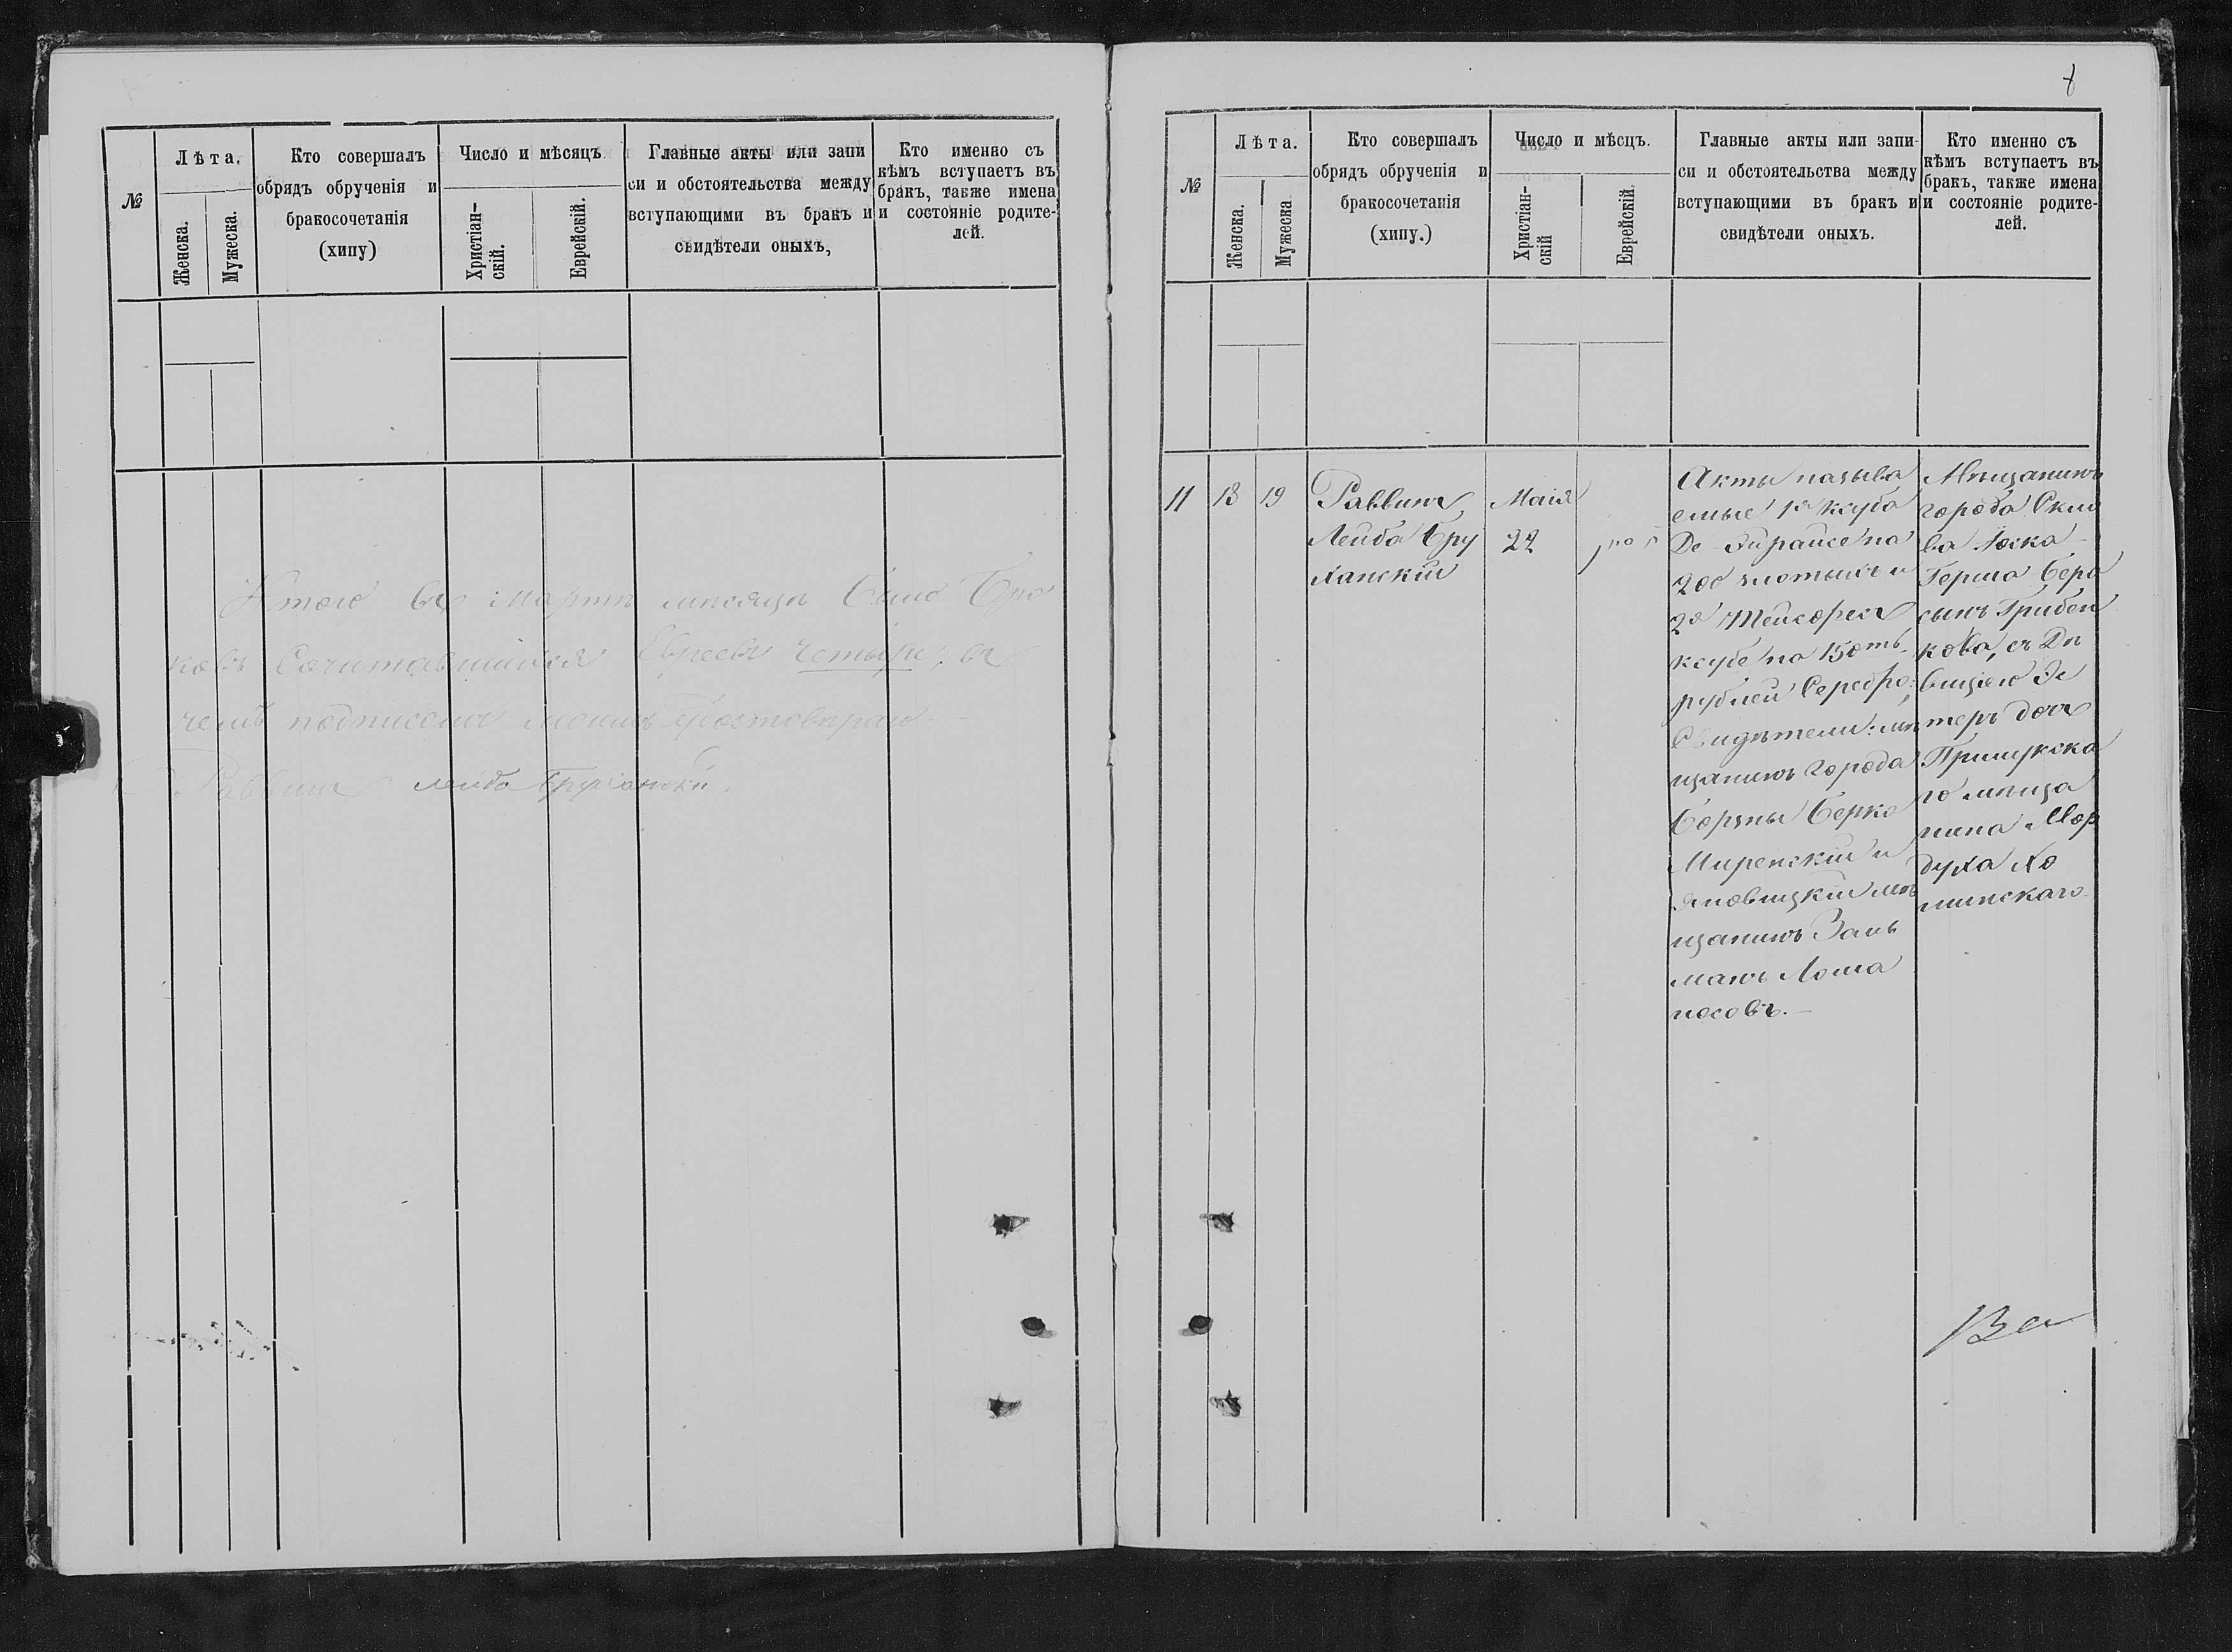 №
Лѣта.
Женска.
Мужеска.
Кто совершалъ
обрядъ обрученія и
бракосочетанія
(хипу)
Число и мѣсяцъ.
Христіан-
скій.
Еврейскій.
Главные акты или запи
си и обстоятельства между
вступающими въ бракъ и
свидѣтели оныхъ,
Кто именно съ
кѣмъ вступаетъ въ
бракъ, также имена
и состояніе родите-
лей.
Итого въ Мартѣ мѣсяцѣ было Бра
ковъ Сочитавшихся Евреевъ четыре, въ
чемъ подписомъ моимъ
Раввинъ Лейба Бруханскій.
№
Лѣта.
Женска.
Мужеска
Кто совершалъ
обрядъ обрученія и
бракосочетанія
(хипу.)
Число и мѣсцъ.
Христіан-
скій
Еврейскій
Главные акты или запи-
си и обстоятельства между
вступающими въ бракъ и
свидѣтели оныхъ.
Кто именно съ
кѣмъ вступаетъ въ
бракъ, также имена
и состояніе родите-
лей.
11
18
19
Раввинъ
Лейба Бру
ханскій
Маія
22
Акты называ
емые 1й Ксуба
Де
200 злотыхъ и
2й
ксубе на 150ть
рублей Серебро;
Свидѣтели: мѣ
щанинъ города
Борзны Берко
Миренскій и
Яновицкій мѣ
щанинъ Заль
манъ Лома
носовъ. —
Мѣщанинъ
города
ва
Герша Бера
сынъ Грибен
кова, съ Дѣ
вицею Эс
теръ дочь
Прилукска
го мѣща
нина Мор
духа Хо
минскаго